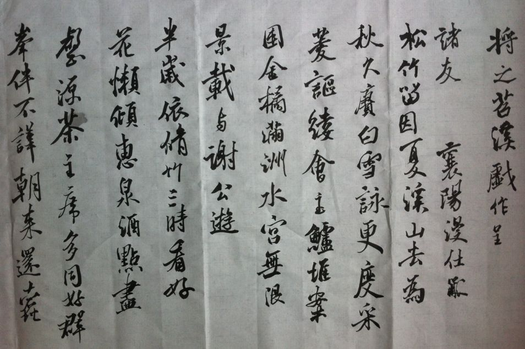 將之苕溪戲作呈
諸友 襄陽漫仕黻
松竹留因夏溪山去為
秋久賡白雪詠更度采
菱謳縷會玉鱸堆案
團金橘滿洲水宮無限
景載與謝公遊
半歲依脩竹三時看好
花懶傾惠泉酒點盡
壑源茶主席多同好群
峯伴不譁朝來還蠹